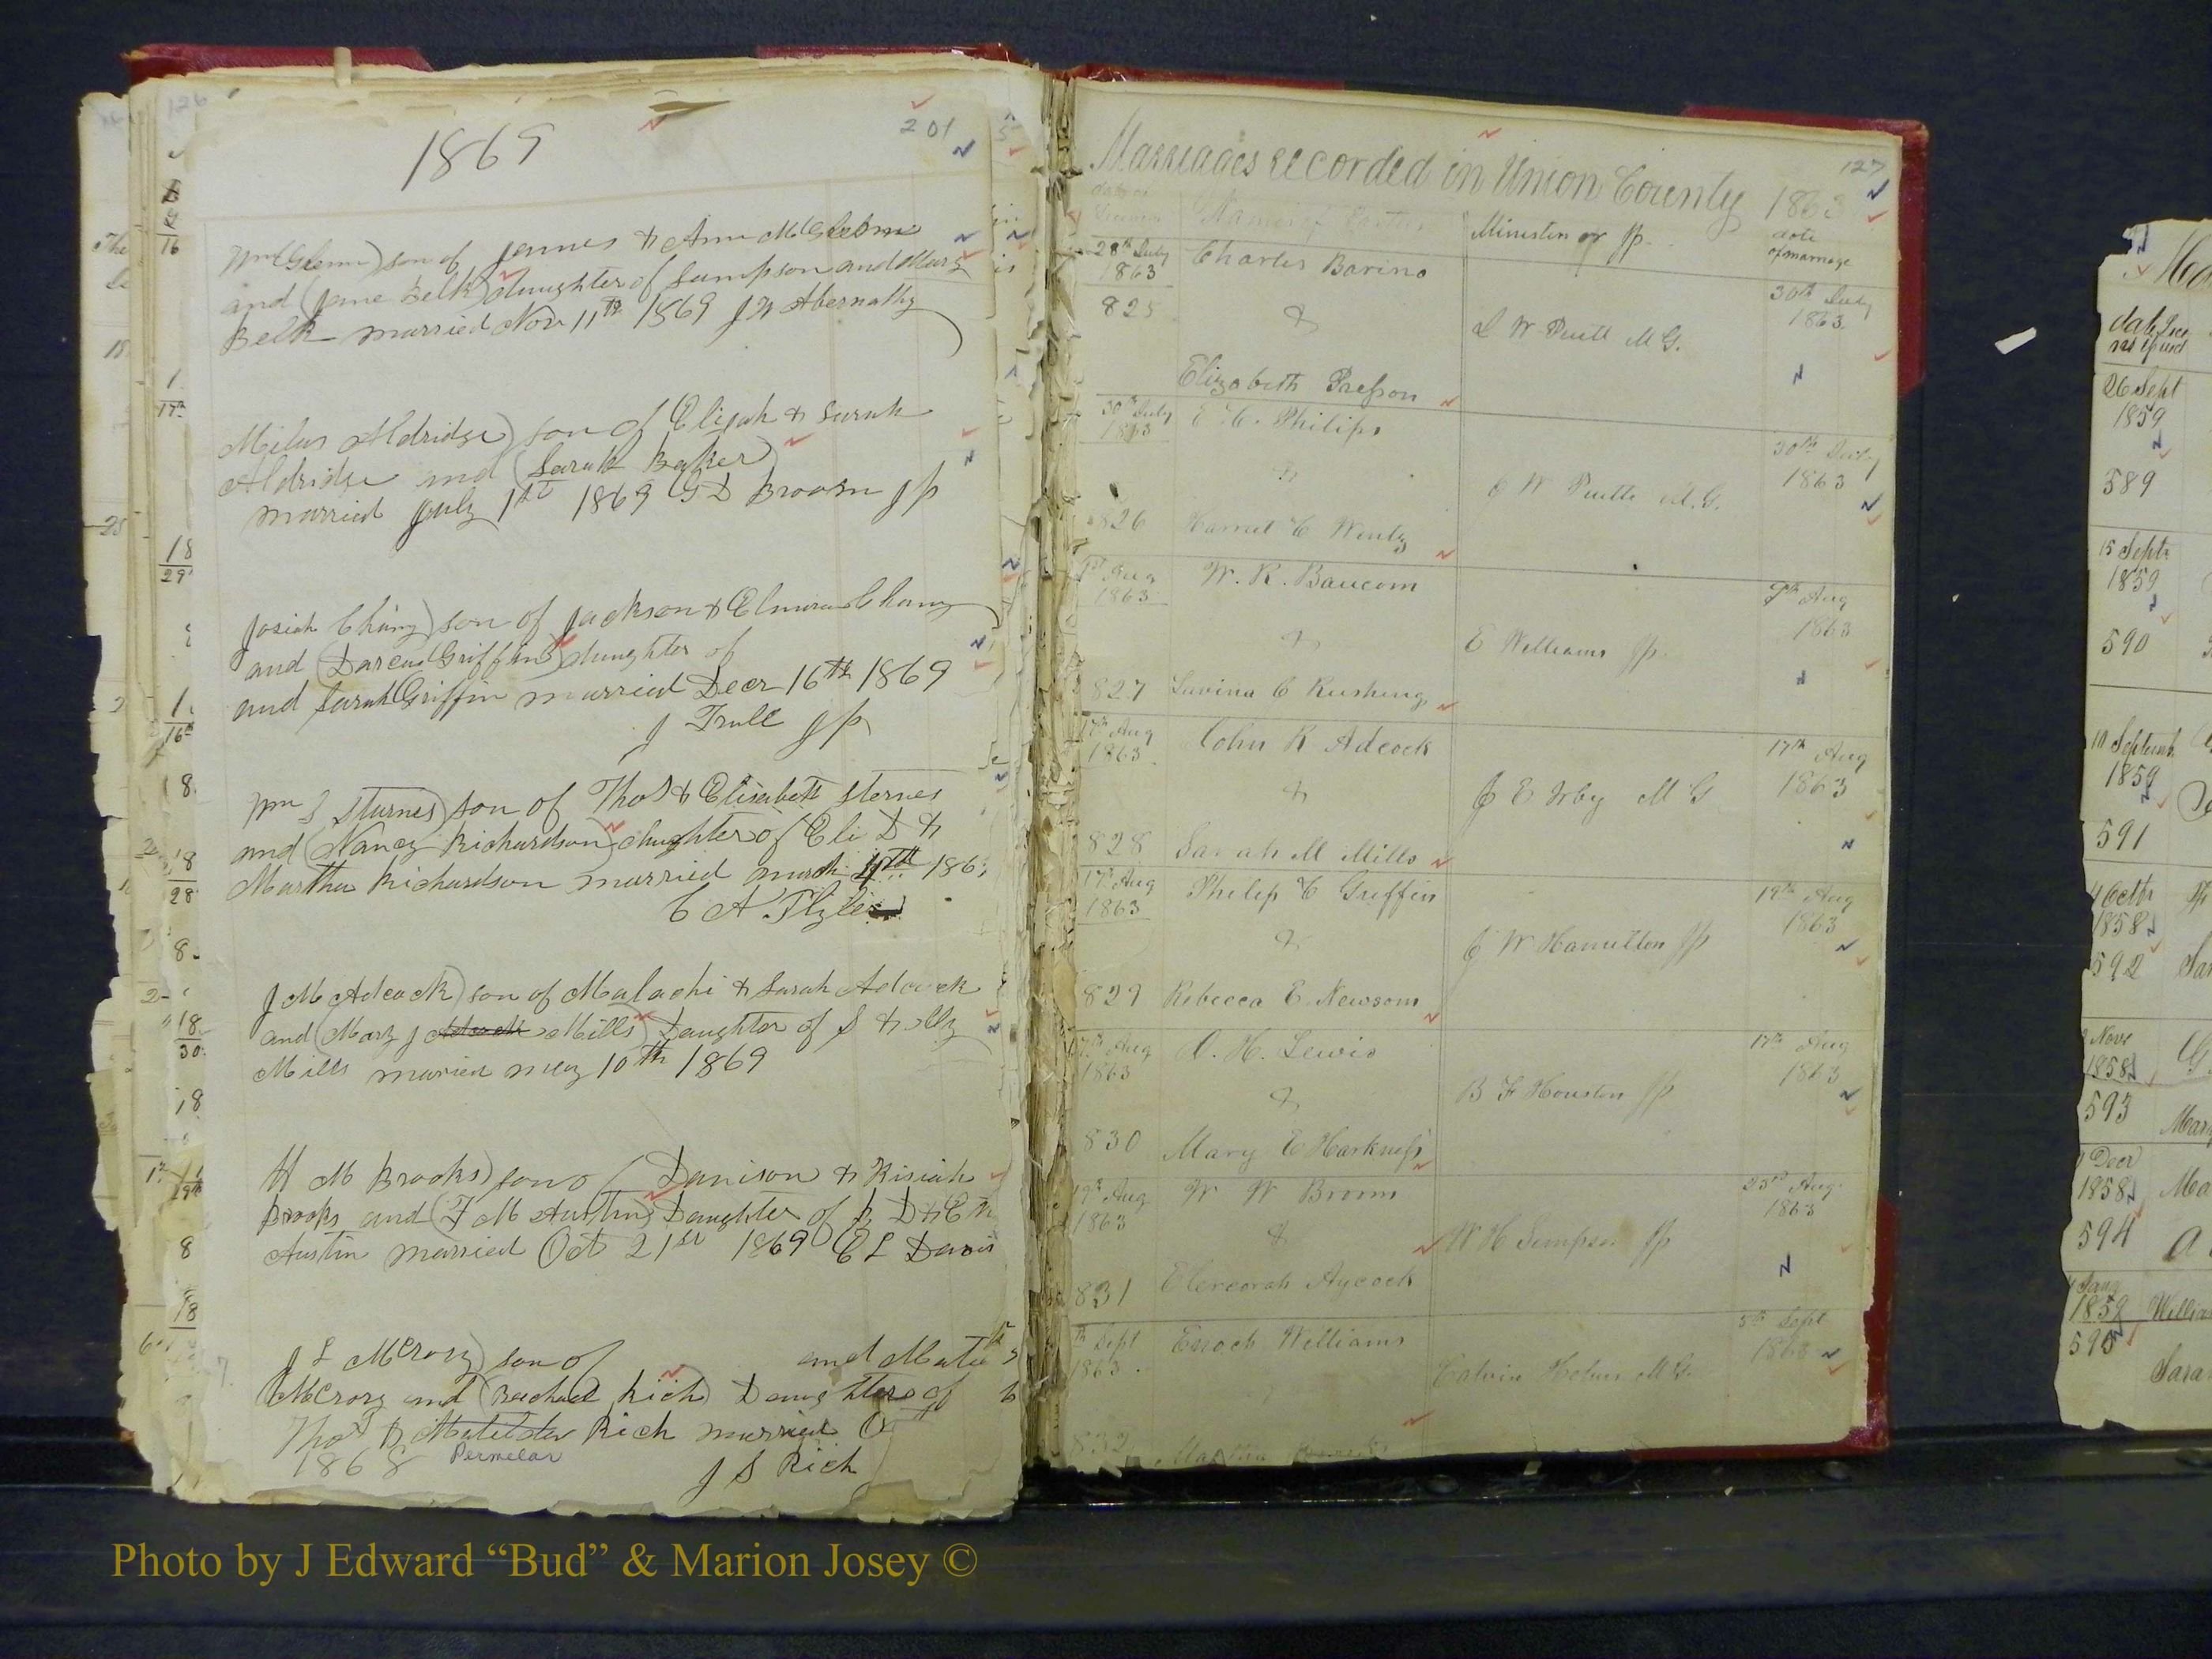 1869
201
Wm Glenn) son of James & Ann McGlenn
and (Jane Belk) daughter of Sampson and Mary
Belk married Nov 11th 1869 J N Abernathy
Milus Aldridge) son of Elijah & Sarah
Aldridge and (Sarah Baker)
married July 1st 1869 G D Broom J P
Josiah Chany) son of Jackson & Elmira Chany
and (Darcus Griffin) daughter of
and Sarah Griffin married Decr 16th 1869
J Trull J P
Wm S Sturnes) son of Thos & Elisabeth Sternes
and (Nancy Richardson) daughter of Eli D &
Martha Richardson married March 4th 186
C A Plyler
J M Adcock) son of Malachi & Sarah Adcock
and (Mary J Adcock Mills) Daughter of S &
Mills married May 10th 1869
H M Brooks) son of Danison & Kisiah
Brooks and (F M Austin) Daughter of
Austin married Oct 21st 1869 E L Davis
J L McCrory) son of and
McCrory and (Rachael Rich) Daughter of
Thos & Matilda Rich married O
1868 Permelar J S Rich
Marriages recorded in Union County 1863
127
date of Names of Parties Minister or J P date of marriage
28th July 1863 Charles Barino 30th July 1863
825 & L W Puett M G.
Elizabeth Presson
30th July 1863 E. C. Philips 30th July 1863
& L W Puett M. G.
826 Harriet C Wentz
1st Aug 1863 W. R. Baucom Aug 1863
& E Williams J P
827 Lavina C Rushing
17th Aug 1863 John R Adcock 17th Aug 1863
& J E Irby M G
828 Sarah M Mills
17th Aug 1863 Philip C Griffin 19th Aug 1863
& J W Hamilton J P
829 Rebecca E. Newsom
17th Aug 1863 A. H. Lewis 17th Aug 1863
& B F Houston J P
830 Mary E Harkness
19th Aug 1863 W W Broom 23rd Aug 1863
& W H Simpson J P
831 Elercorah Aycock
Sept 1863 Enoch Williams 5th Sept 1863
Calvin Helms M G.
832 Martha
date
26 Sept
1859
589
15 Sept
1859
590
10 Septemb
1859
591
4 Octr
1858
592
Nove
1858
593
Decr
1858
594
Jany
1859 William
595
Photo by J Edward “Bud” & Marion Josey ©